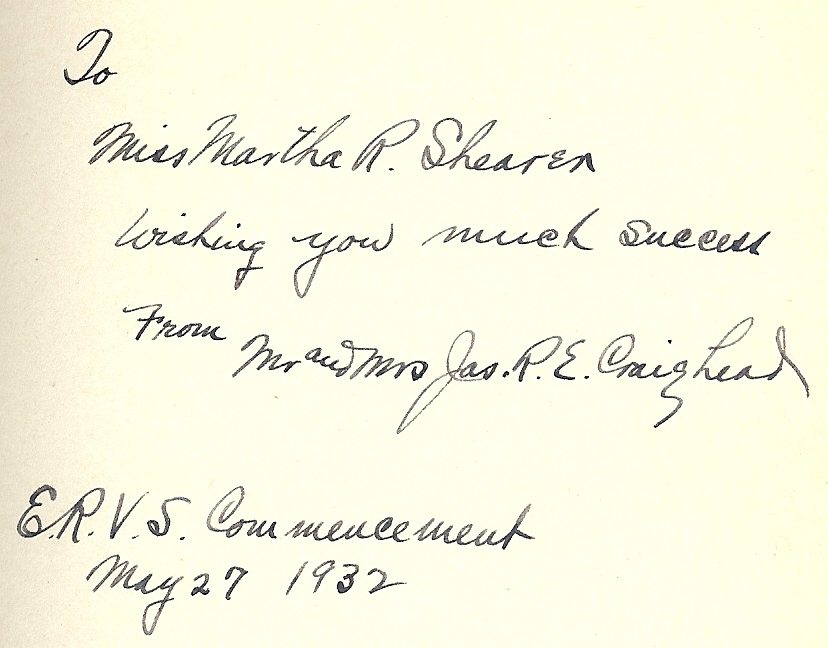 To
Miss Martha R. Shearer
Wishing you much success
From
Mr and Mrs Jas. R. E. Craighead
E.R.V.S. Commencement
May 27 1932